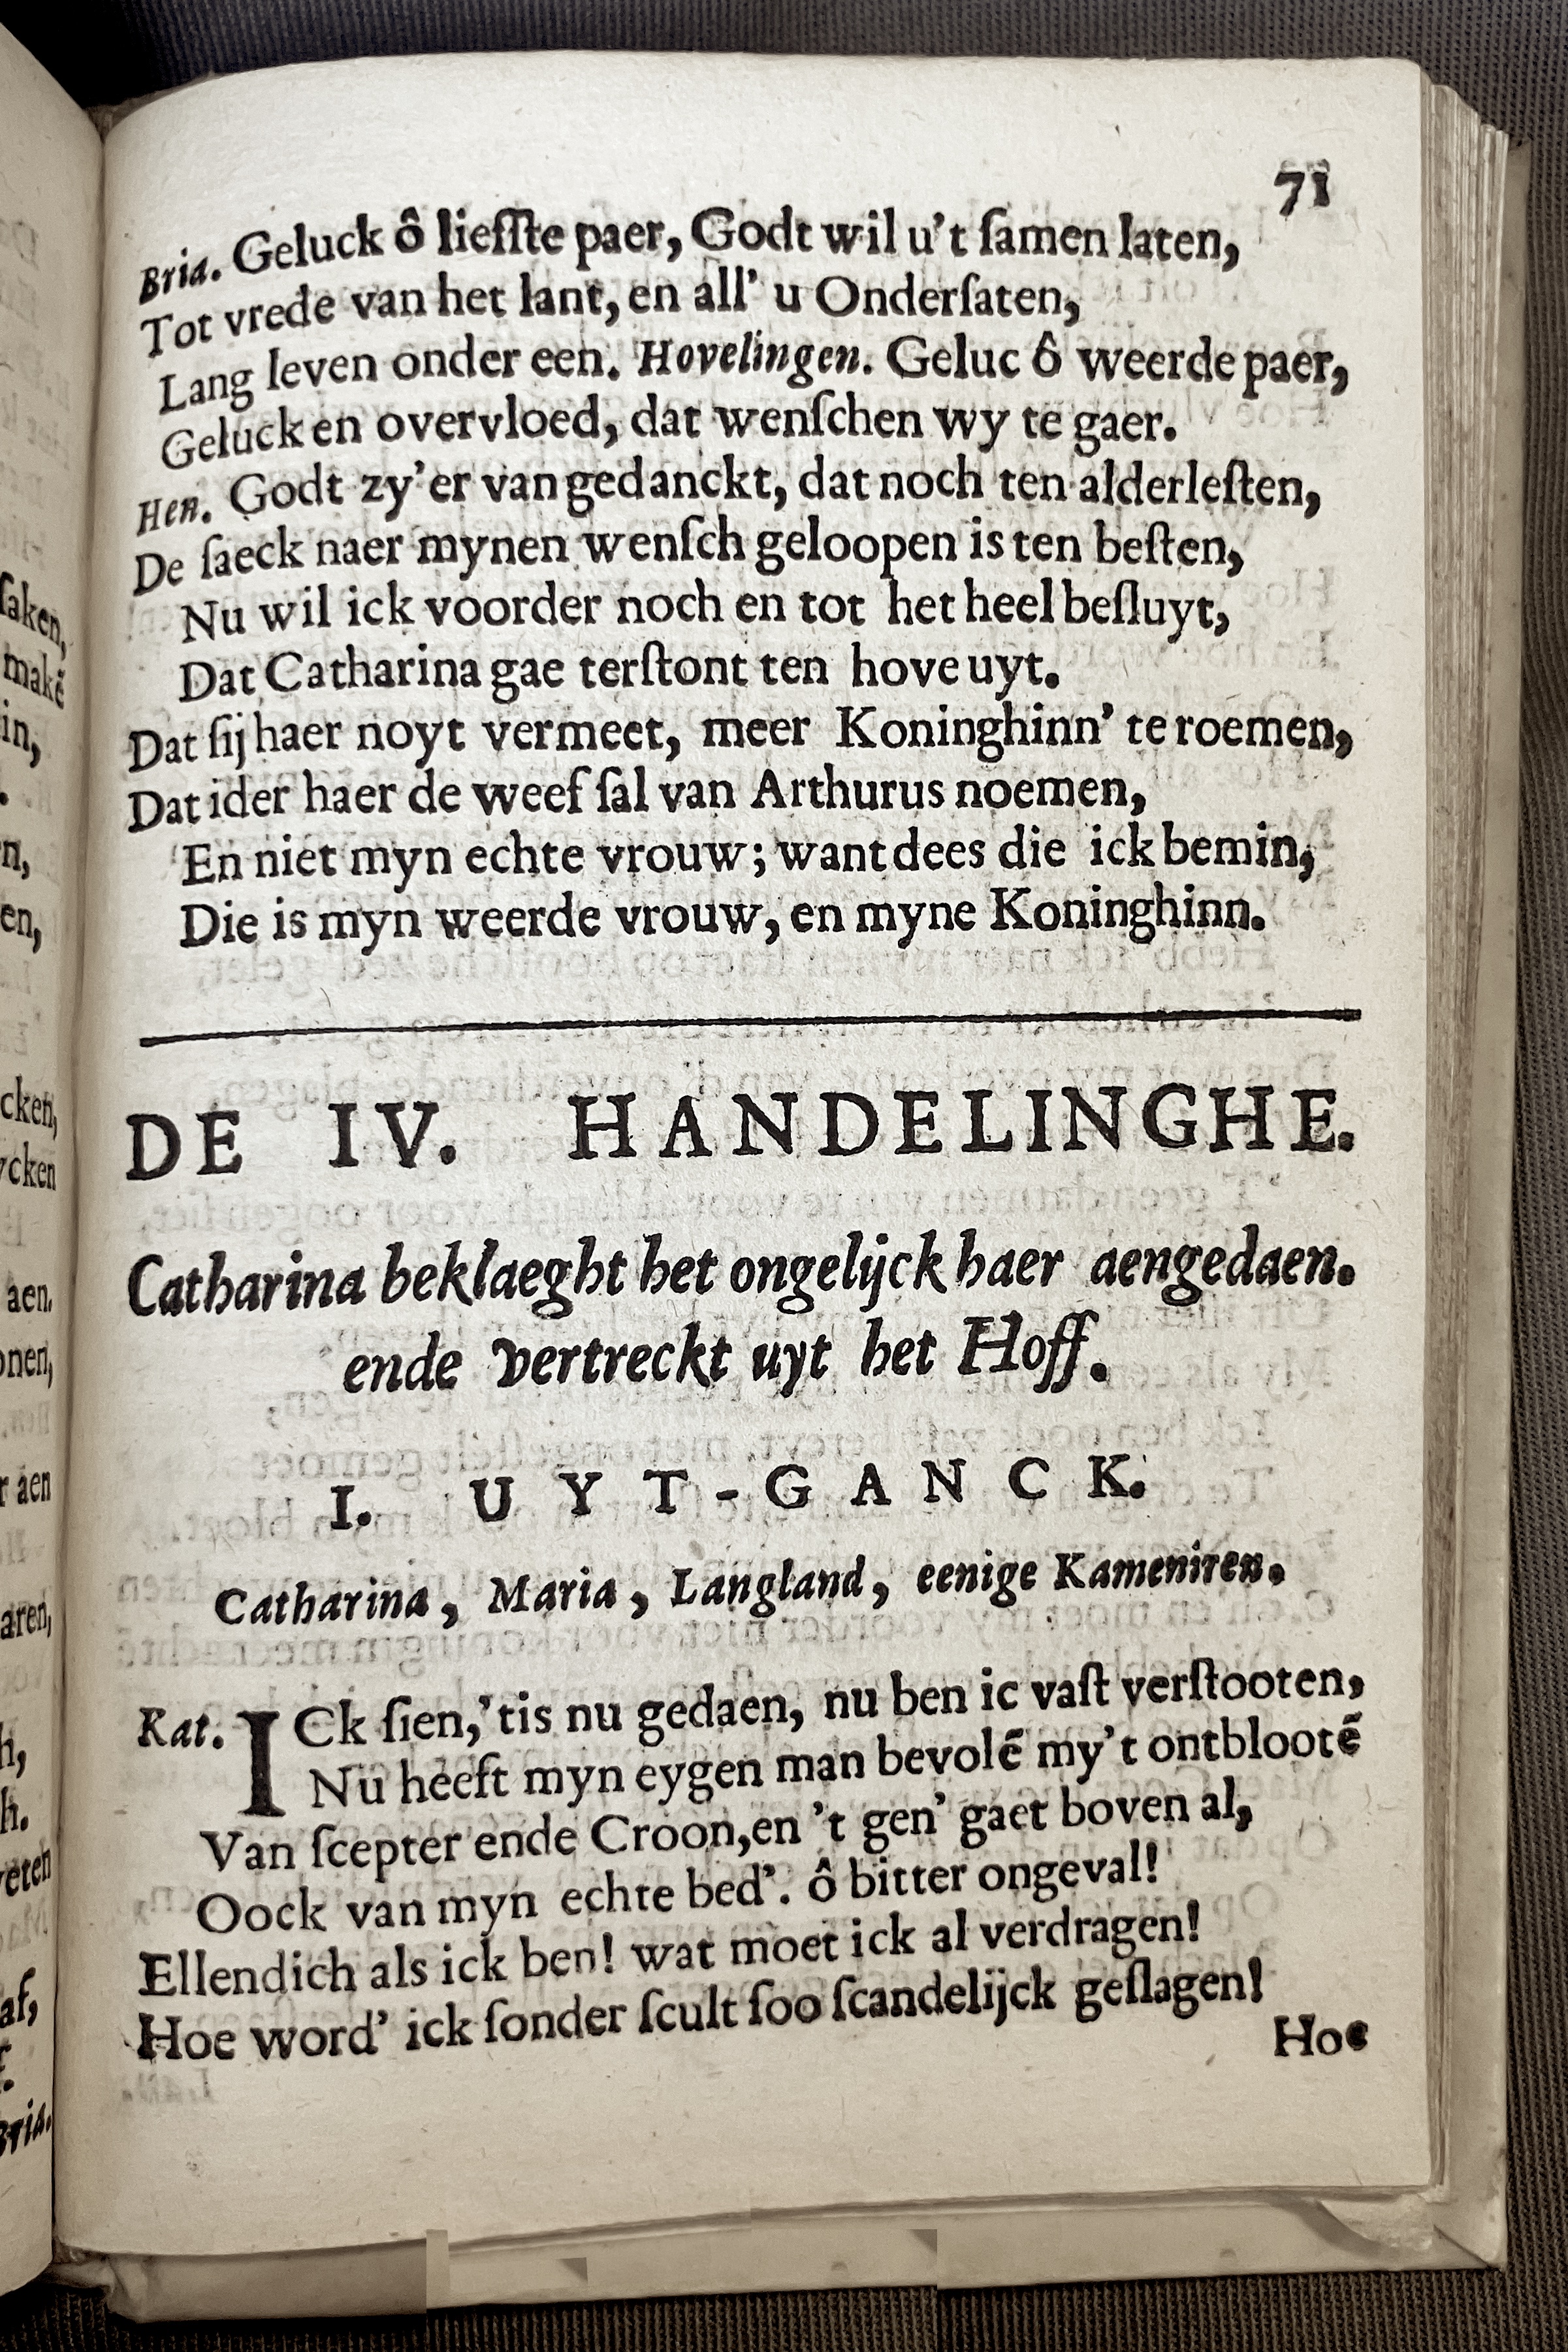 71
Bria. Geluck ô liefſte paer, Godt wil u't ſamen laten,
Tot vrede van het lant, en all' u Onderſaten,
Lang leven onder een. Hovelingen. Geluc ô weerde paer,
Geluck en overvloed, dat wenſchen wy te gaer.
Hen. Godt zy'er van gedanckt, dat noch ten alderleſten,
De ſaeck naer mynen wenſch geloopen is ten beſten,
Nu wil ick voorder noch en tot het heel beſluyt,
Dat Catharina gae terſtont ten hove uyt.
Dat ſij haer noyt vermeet, meer Koninghinn' te roemen,
Dat ider haer de weef ſal van Arthurus noemen,
En niet myn echte vrouw; want dees die ick bemin,
Die is myn weerde vrouw, en myne Koninghinn.
DE IV. HANDELINGHE.
Catharina beklaeght het ongelijck haer aengedaen.
ende vertreckt uyt het Hoff.
I. UYT-GANCK.
Catharina, Maria, Langland, eenige Kameniren.
Kat. ICk ſien,'tis nu gedaen, nu ben ic vaſt verſtooten,
Nu heeft myn eygen man bevolē my't ontblootē
Van ſcepter ende Croon,en 't gen' gaet boven al,
Oock van myn echte bed'. ô bitter ongeval!
Ellendich als ick ben! wat moet ick al verdragen!
Hoe word' ick ſonder ſcult ſoo ſcandelijck geſlagen!
Hoe
ſaken,
makē
in,
n,
en,
cken,
ycken
aen.
onen,
r aen
aren,
h,
h.
veten
af,
Bria.